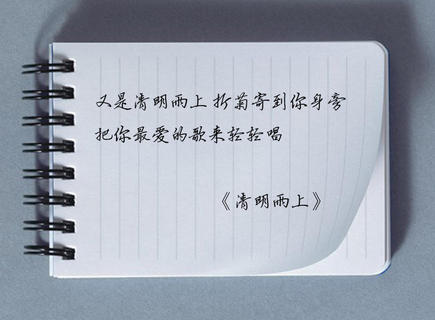 又是清明雨上 折菊寄到你身旁
把你最爱的歌来轻轻唱
《清明雨上》